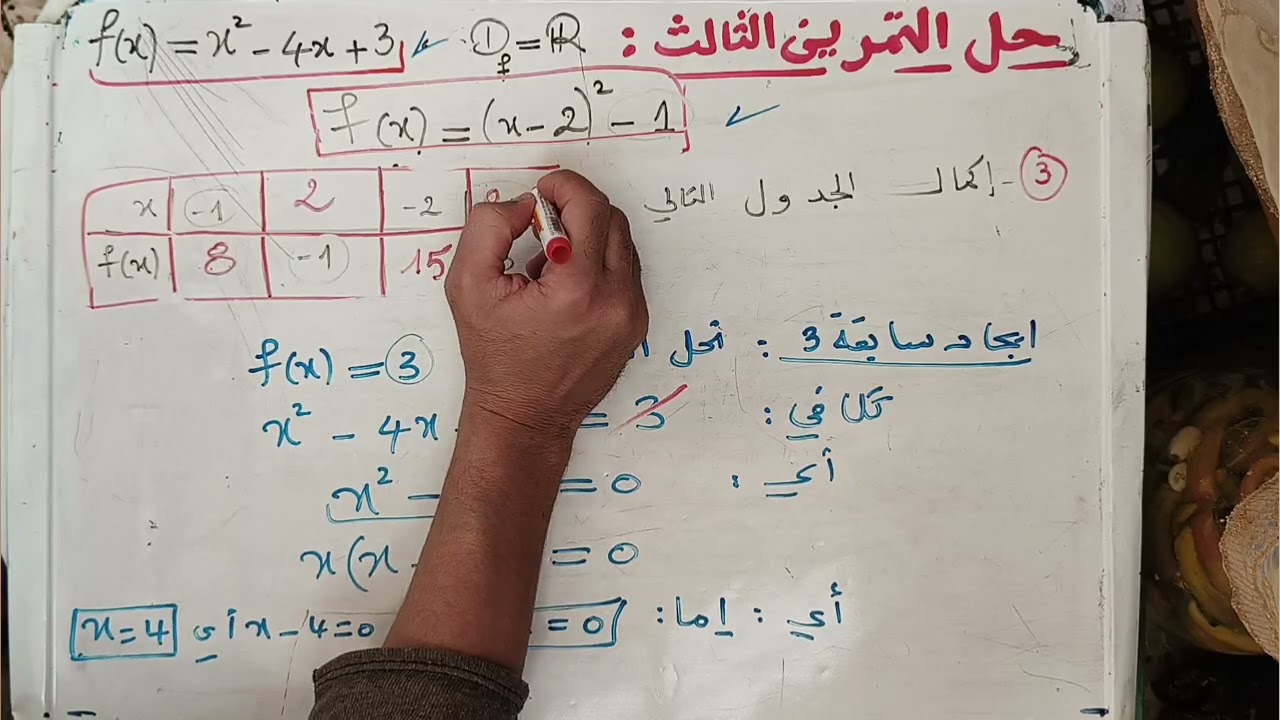 حل التمرين الثالث :
f(x) = x² - 4x + 3 D_f = ℝ
f(x) = (x - 2)² - 1
3 - إكمال الجدول التالي
x -1 2 -2
f(x) 8 -1 15
ايجاد سابقة 3 : نحل
f(x) = 3
تكافئ : x² - 4x = 3
أي : x² - = 0
x(x = 0
أي : إما : = 0 أي x - 4 = 0 x = 4